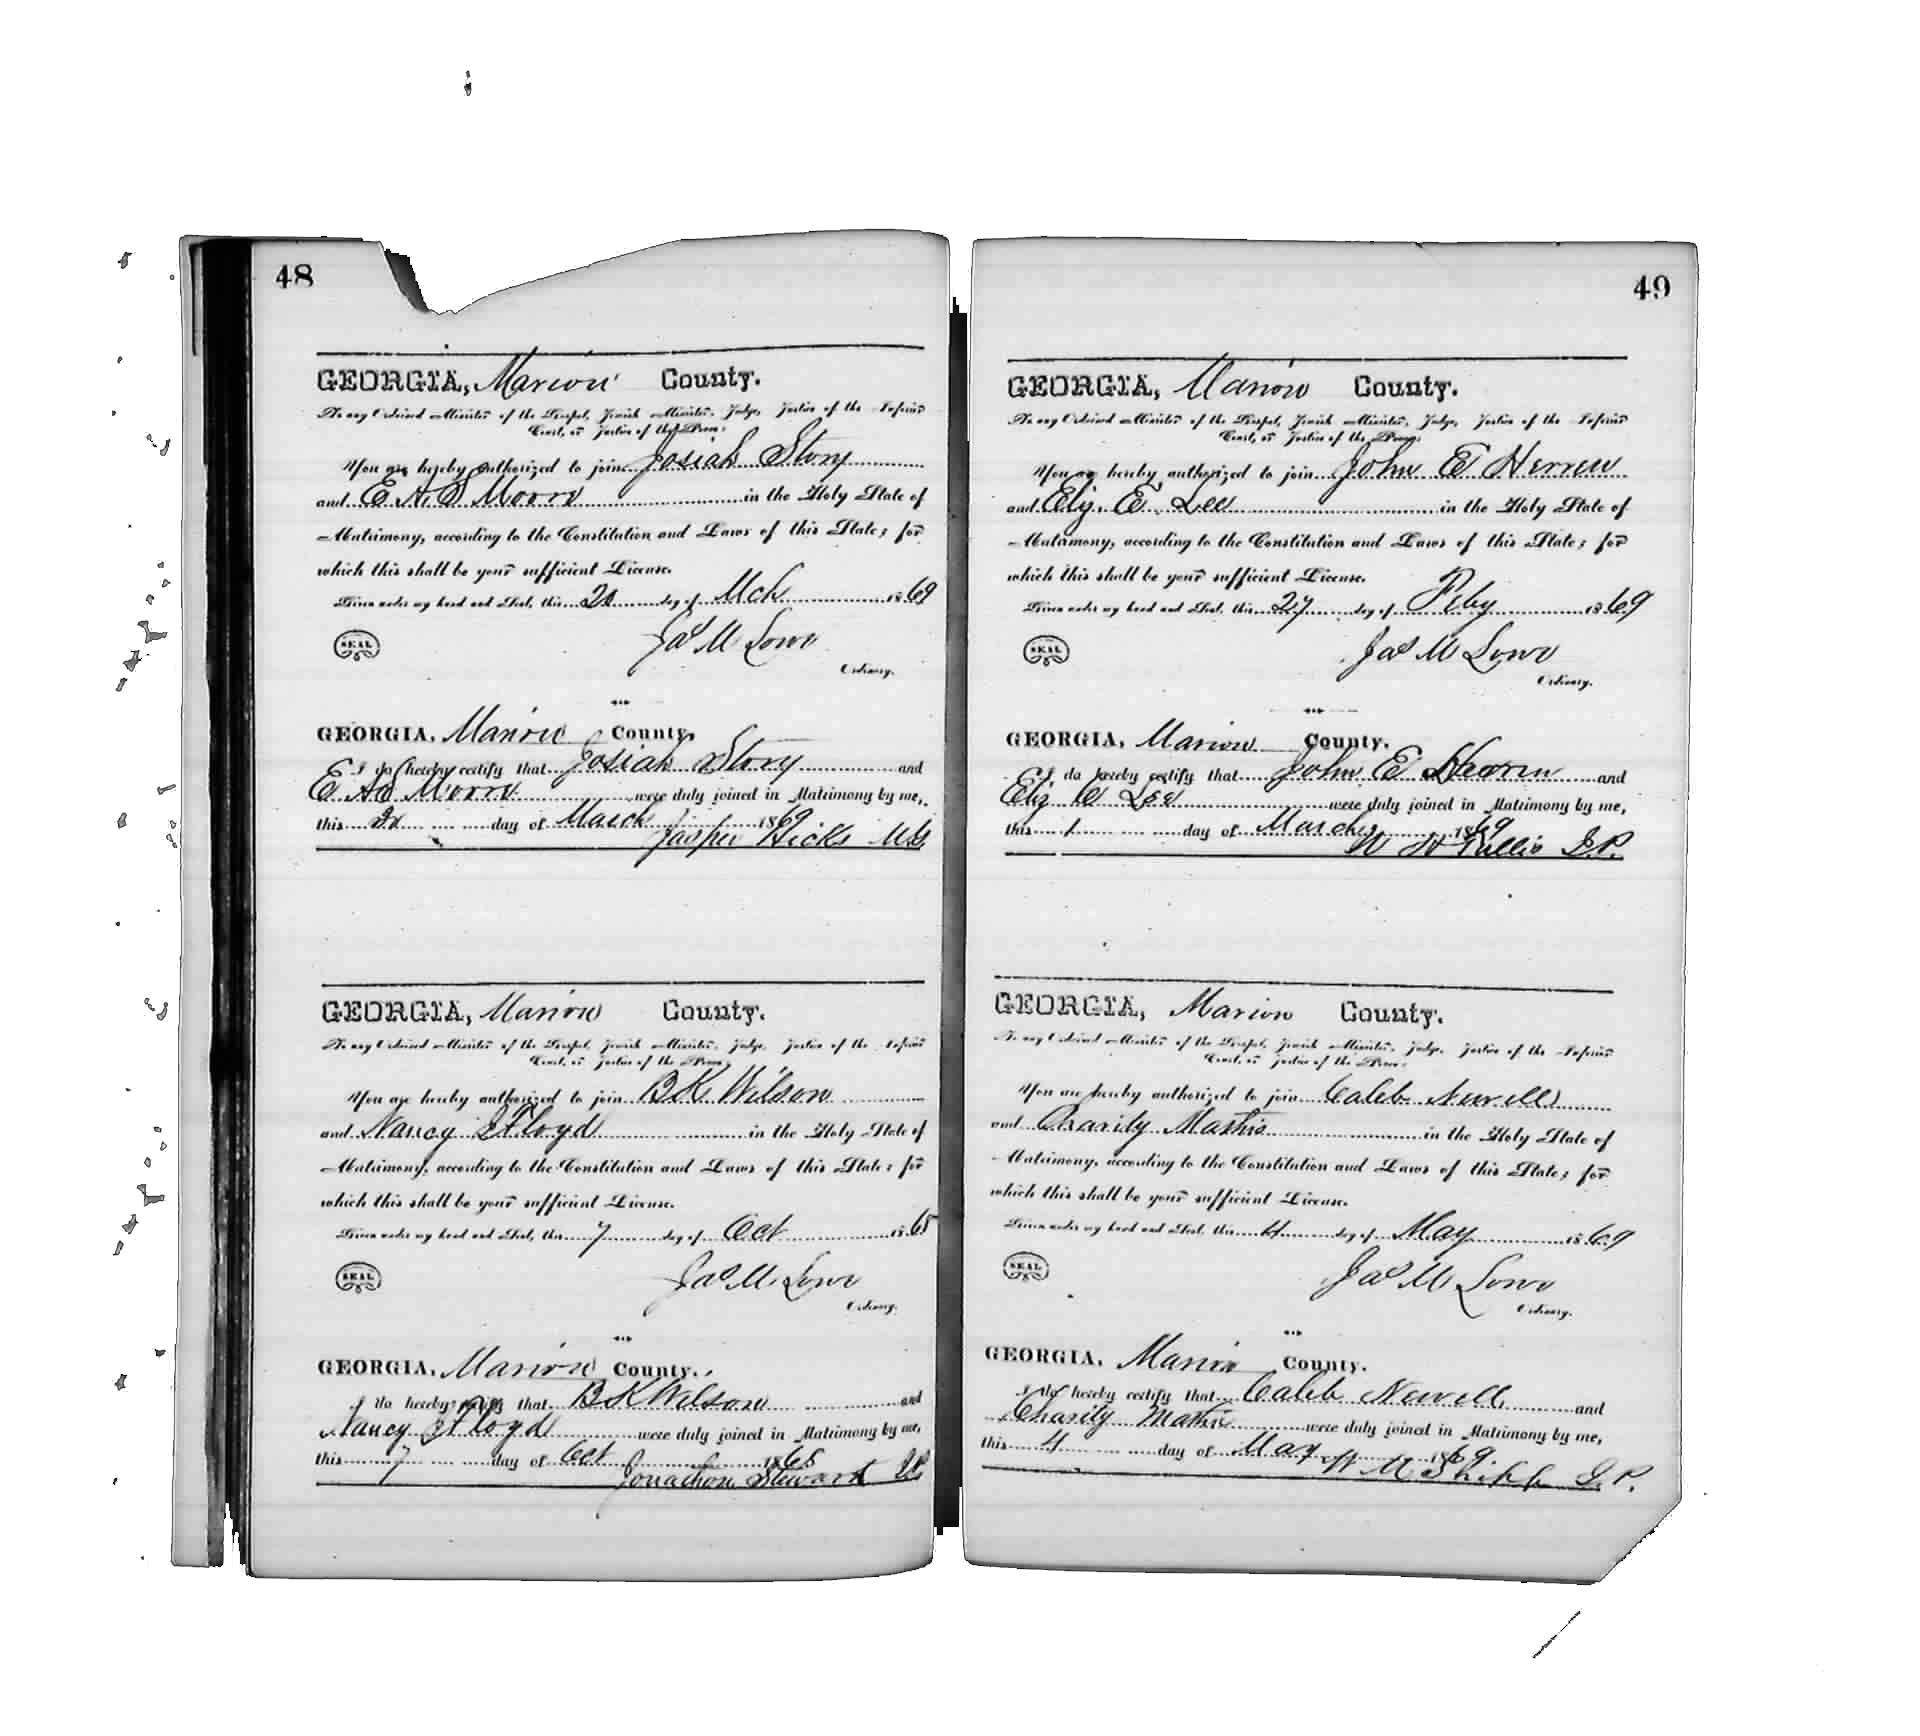 48
GEORGIA, Marion County.
To any Ordained Minister of the Gospel, Jewish Minister, Judge, Justice of the Inferior
Court, or Justice of the Peace:
You are hereby authorized to join Josiah Story
and E. A. S Moore in the Holy State of
Matrimony, according to the Constitution and Laws of this State; for
which this shall be your sufficient License.
Given under my hand and Seal, this 20 day of Mch 1869
SEAL
Jas M Lowe
Ordinary.
GEORGIA, Marion County,
I do hereby certify that Josiah Story and
E A S Moore were duly joined in Matrimony by me,
this day of March 1869
Jasper Hicks M.G.
GEORGIA, Marion County.
To any Ordained Minister of the Gospel, Jewish Minister, Judge, Justice of the Inferior
Court, or Justice of the Peace:
You are hereby authorized to join B K Wilson
and Nancy Floyd in the Holy State of
Matrimony, according to the Constitution and Laws of this State; for
which this shall be your sufficient License.
Given under my hand and Seal, this 7 day of Oct 1865
SEAL
Jas M Lowe
Ordinary.
GEORGIA, Marion County.
I do hereby certify that B K Wilson and
Nancy Floyd were duly joined in Matrimony by me,
this 7 day of Oct 1865
Jonathon Stewart
49
GEORGIA, Marion County.
To any Ordained Minister of the Gospel, Jewish Minister, Judge, Justice of the Inferior
Court, or Justice of the Peace:
You are hereby authorized to join John E Herren
and Eliz. E. Lee in the Holy State of
Matrimony, according to the Constitution and Laws of this State; for
which this shall be your sufficient License.
Given under my hand and Seal, this 27 day of Feby 1869
SEAL
Jas M Lowe
Ordinary.
GEORGIA, Marion County.
I do hereby certify that John E Herren and
Eliz E Lee were duly joined in Matrimony by me,
this 1 day of March 1869
W H Tullis J.P.
GEORGIA, Marion County.
To any Ordained Minister of the Gospel, Jewish Minister, Judge, Justice of the Inferior
Court, or Justice of the Peace:
You are hereby authorized to join Caleb Newell
and Charity Mathis in the Holy State of
Matrimony, according to the Constitution and Laws of this State; for
which this shall be your sufficient License.
Given under my hand and Seal, this 4 day of May 1869
SEAL
Jas M Lowe
Ordinary.
GEORGIA, Marion County.
I do hereby certify that Caleb Newell and
Charity Mathis were duly joined in Matrimony by me,
this 4 day of May 1869
W M Shipp J.P.